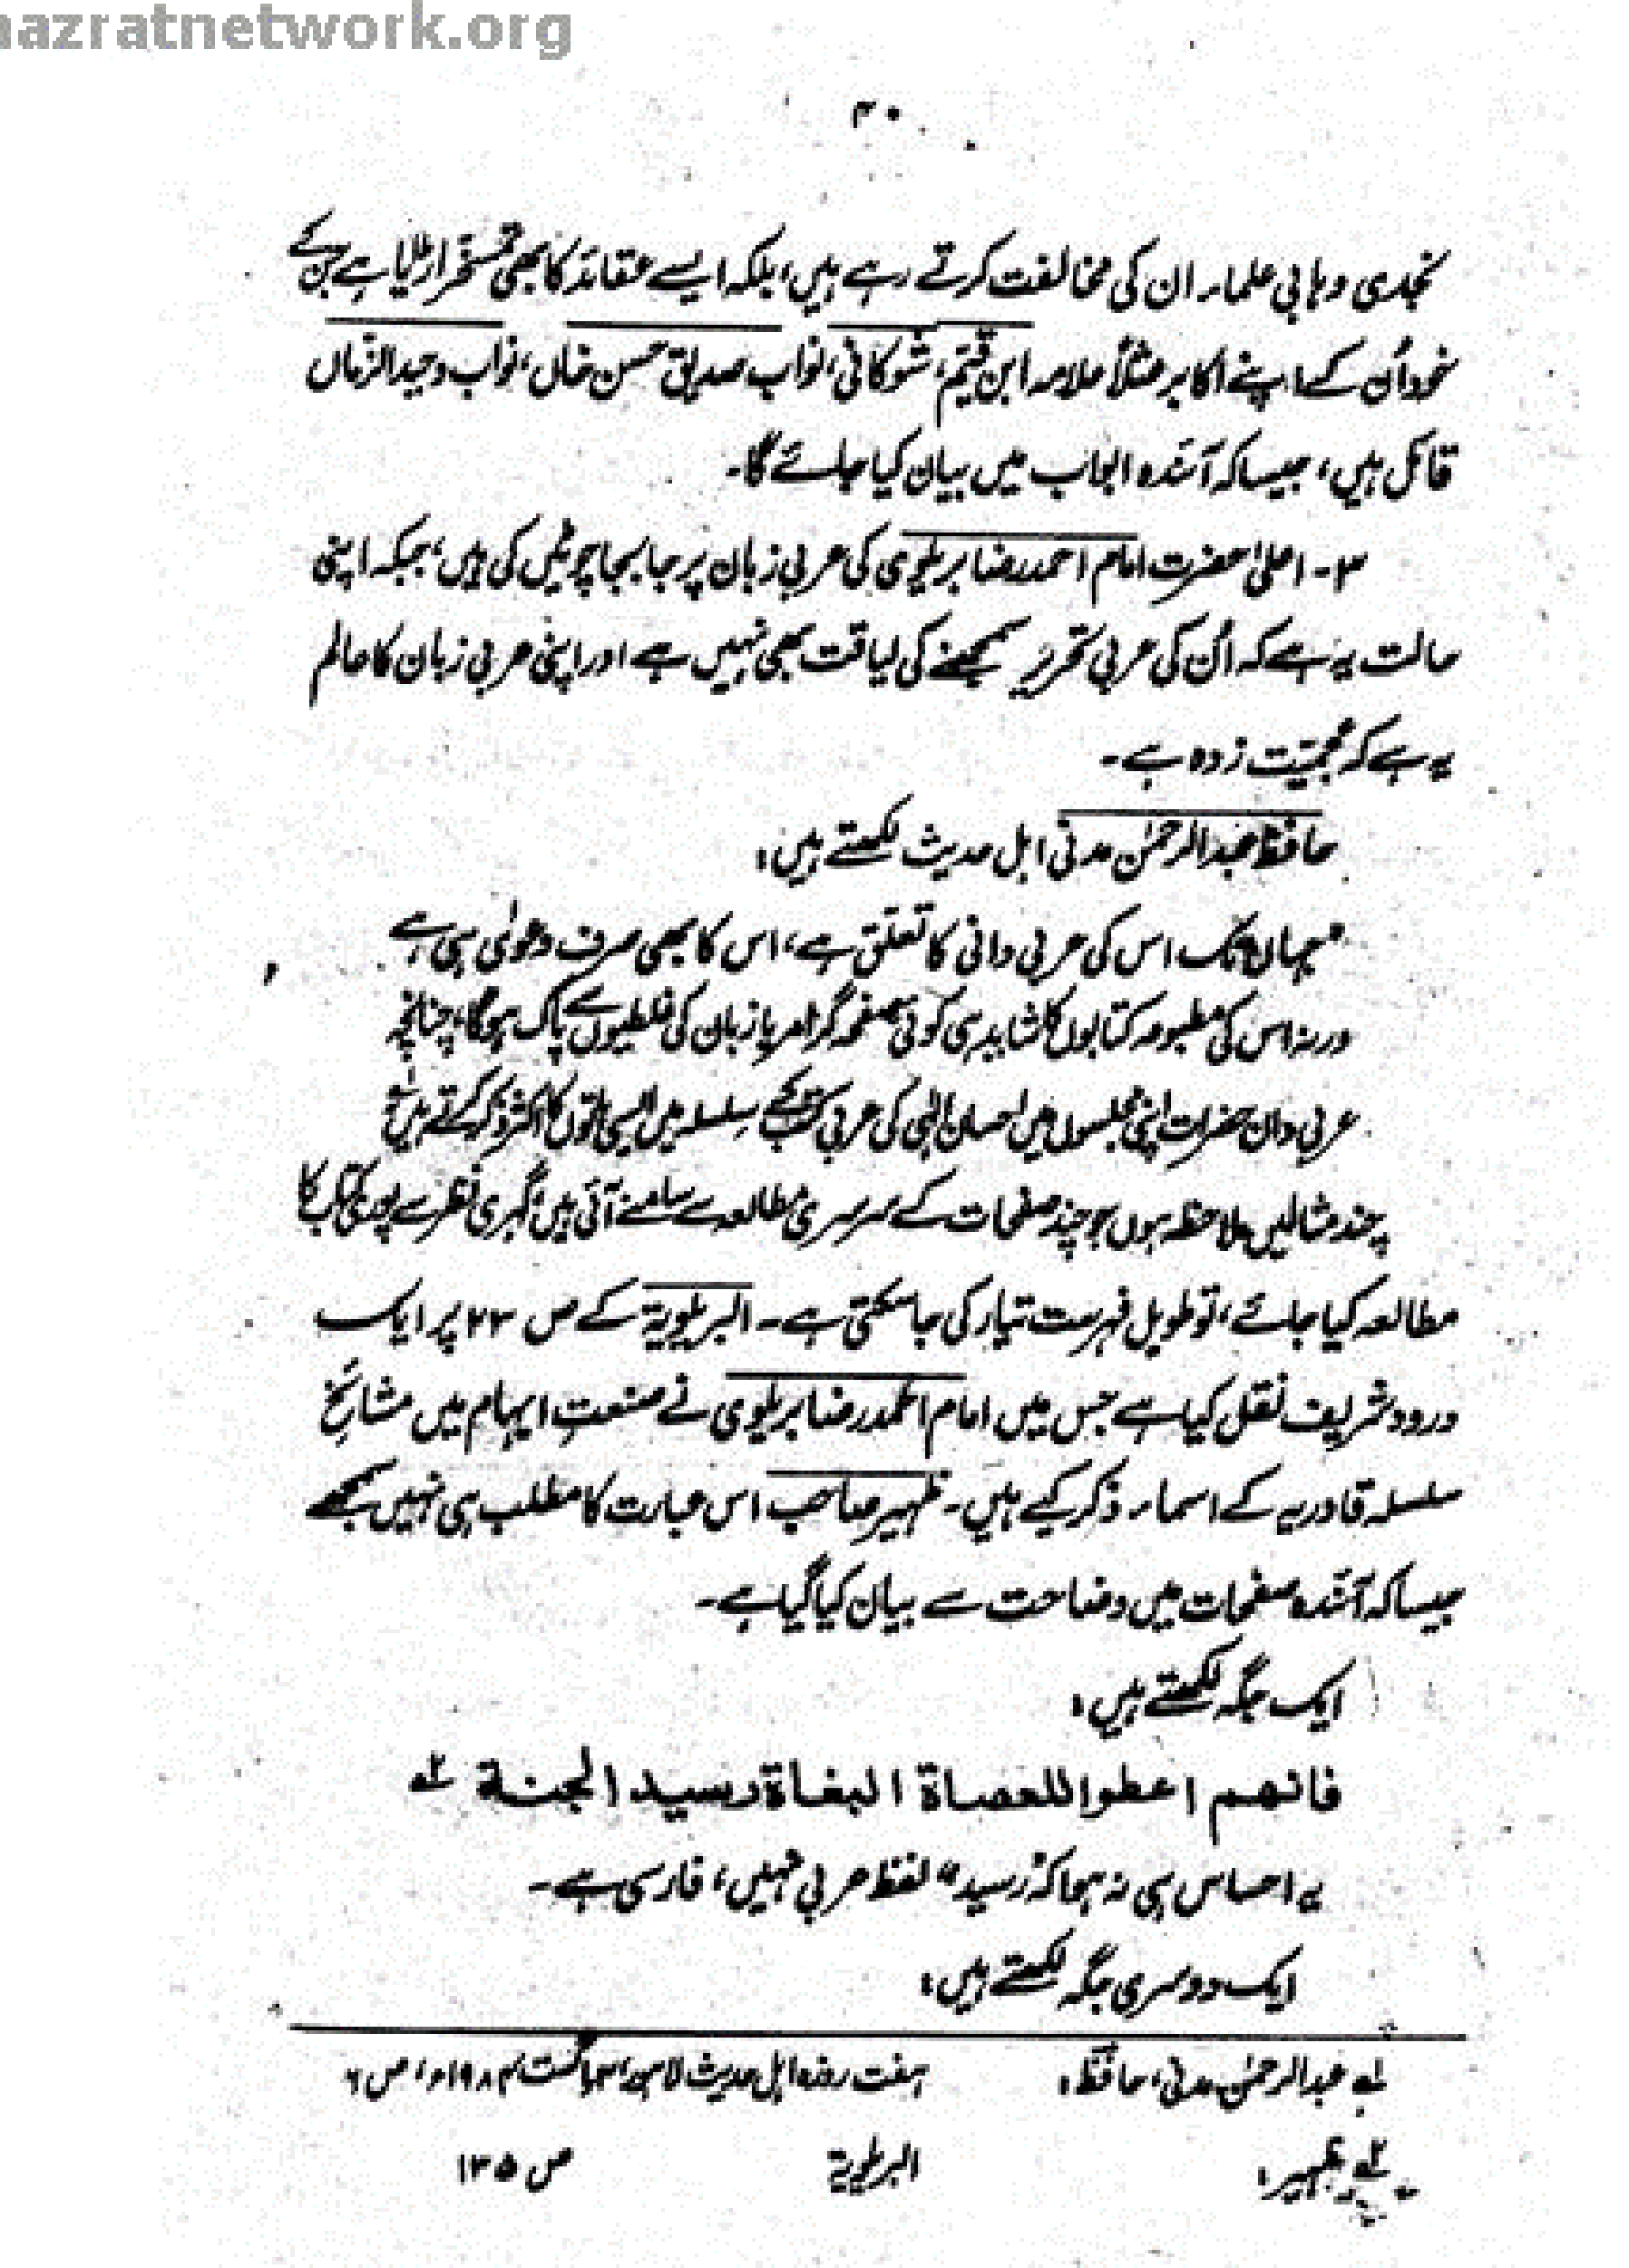 hazratnetwork.org
۳۰
نجدی وہابی علماء ان کی مخالفت کرتے رہے ہیں، بلکہ ایسے عقائد کا بھی تمسخر اڑایا ہے جن کے
خود اُن کے اپنے اکابر مثلاً علامہ ابن قیّم، شوکانی، نواب صدیق حسن خاں، نواب وحید الزماں
قائل ہیں، جیسا کہ آئندہ ابواب میں بیان کیا جائے گا۔
۳۔ اعلیٰ حضرت امام احمد رضا بریلوی کی عربی زبان پر جا بجا چوٹیں کی ہیں، جبکہ اپنی
حالت یہ ہے کہ اُن کی عربی تحریر سمجھنے کی لیاقت بھی نہیں ہے اور اپنی عربی زبان کا عالم
یہ ہے کہ عجمیّت زدہ ہے۔
حافظ عبدالرحمٰن مدنی اہل حدیث لکھتے ہیں:
"جہاں تک اس کی عربی دانی کا تعلق ہے، اس کا بھی صرف دعوٰی ہی ہے
ورنہ اس کی مطبوعہ کتابوں کا شاید ہی کوئی صفحہ گرامر یا زبان کی غلطیوں سے پاک ہوگا، چنانچہ
عربی دان حضرات اپنی مجلسوں میں احسان الٰہی کی عربی کتب کے سلسلہ میں ایسی باتوں کا اکثر ذکر کرتے ہیں لے
چند مثالیں ملاحظہ ہوں جو چند صفحات کے سرسری مطالعہ سے سامنے آئی ہیں، گہری نظر سے پوری کتاب کا
مطالعہ کیا جائے، تو طویل فہرست تیار کی جا سکتی ہے۔ البریلویة کے ص ۲۳ پر ایک
درود شریف نقل کیا ہے جس میں امام احمد رضا بریلوی نے صنعتِ ایہام میں مشائخِ
سلسلہ قادریہ کے اسماء ذکر کیے ہیں۔ ظہیر صاحب اس عبارت کا مطلب ہی نہیں سمجھے
جیسا کہ آئندہ صفحات میں وضاحت سے بیان کیا گیا ہے۔
ایک جگہ لکھتے ہیں:
فانهم اعطوا للعصاة البغاة رسيد الجنة ۲ے
یہ احساس ہی نہ ہوا کہ "رسید" لفظ عربی نہیں، فارسی ہے۔
ایک دوسری جگہ لکھتے ہیں:
لے عبدالرحمٰن مدنی، حافظ: ہفت روزہ اہل حدیث لاہور، اگست ۱۹۸۴ء، ص ۶
۲ے ظہیر: البریلویة ص ۱۳۵